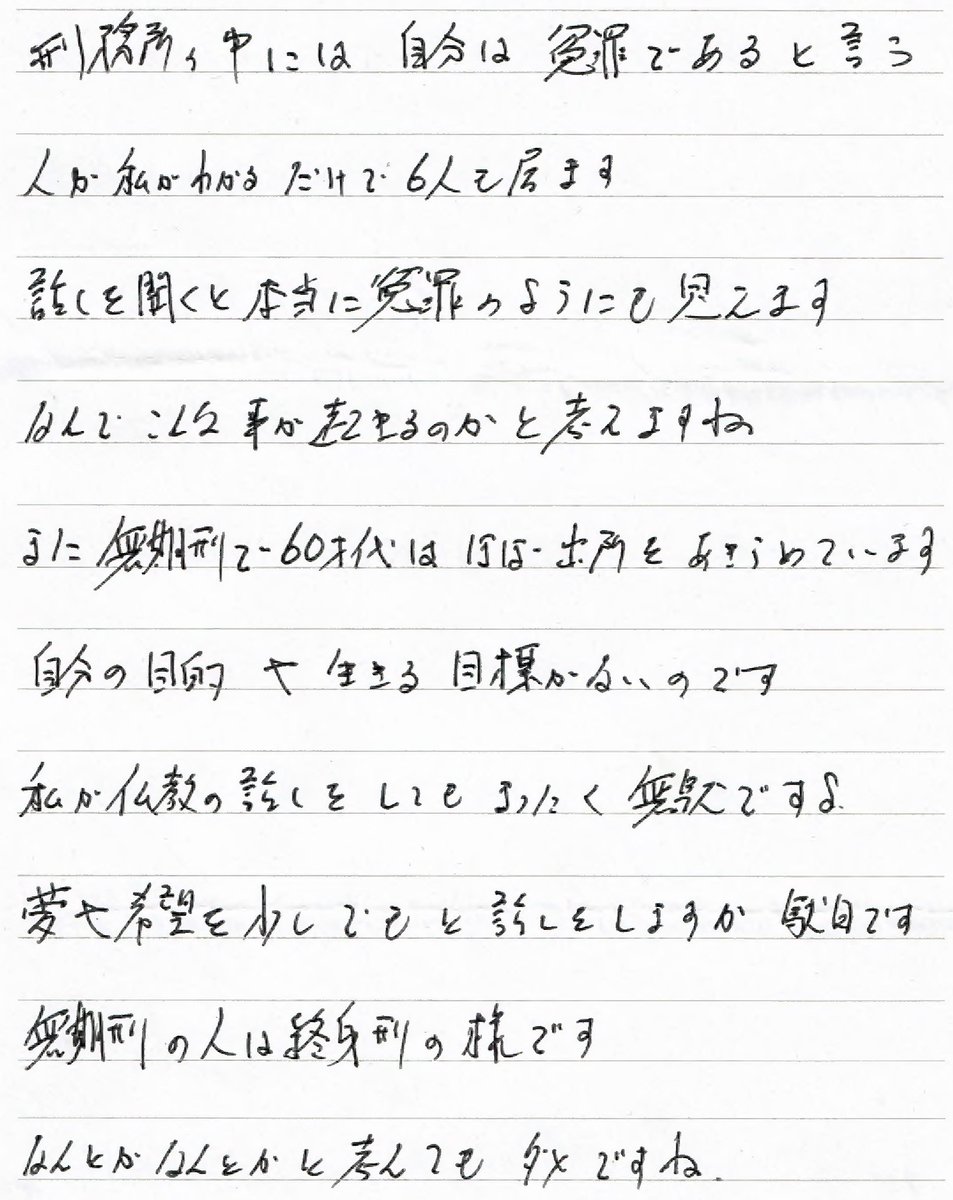 刑務所の中には 自分は 冤罪であると言う
人が私がわかるだけで6人も居ます
話しを聞くと本当に冤罪のようにも見えます
なんでこんな事が起きるのかと考えますね
また無期刑で60才代はほぼ出所をあきらめています
自分の目的や生きる目標がないのです
私が仏教の話しをしてもまったく無駄ですよ
夢や希望を少しでもと話しをしますが駄目です
無期刑の人は終身刑の様です
なんとかなんとかと考んてもダメですね.